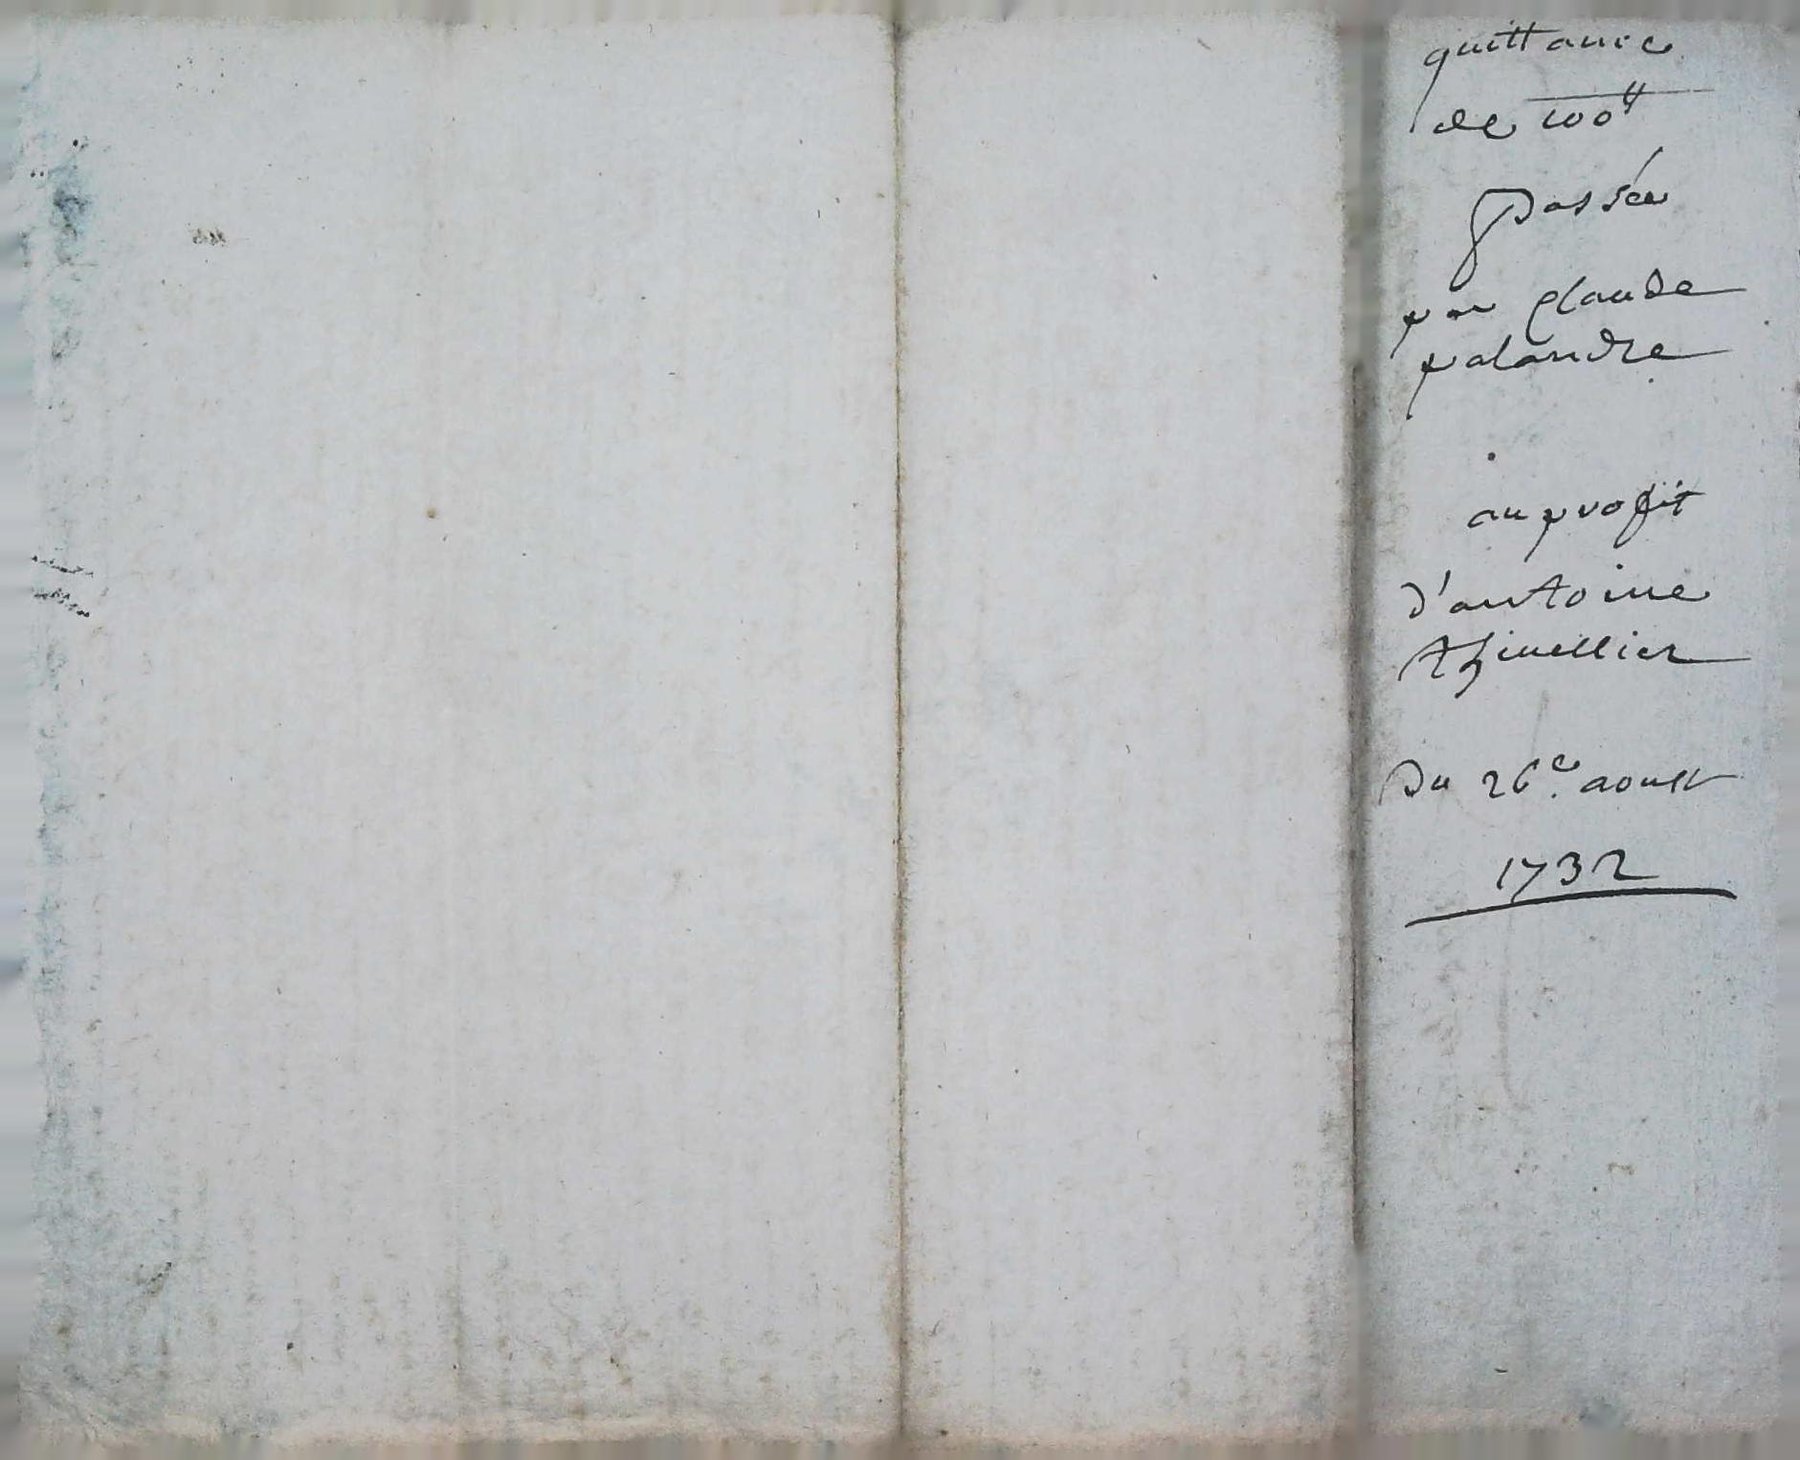 quittance
de 100ᵗᵗ
Passée
par Claude
palandre
au profit
d'antoine
Thivellier
Du 26e. aoust
1732